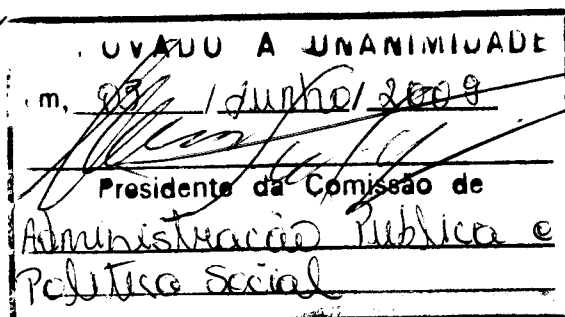 OVADO A UNANIMIDADE
m, 03 / Junho / 2009
Presidente da Comissão de
Administração Publica e
Politica Social